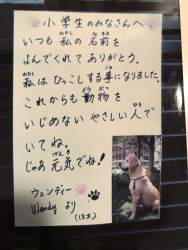 小学生のみなさんへ
いつも私の名前を
よんでくれてありがとう。
私はひっこしする事になりました。
これからも動物を
いじめないやさしい人で
いてね。
じゃあ元気でね!
ウェンディー
Wendyより